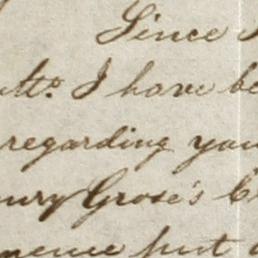 Since
ulto. I have be
regarding you
enry Grose's C
mence just